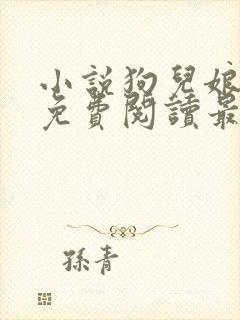 小說狗兒娘
免費閱讀最
孫青